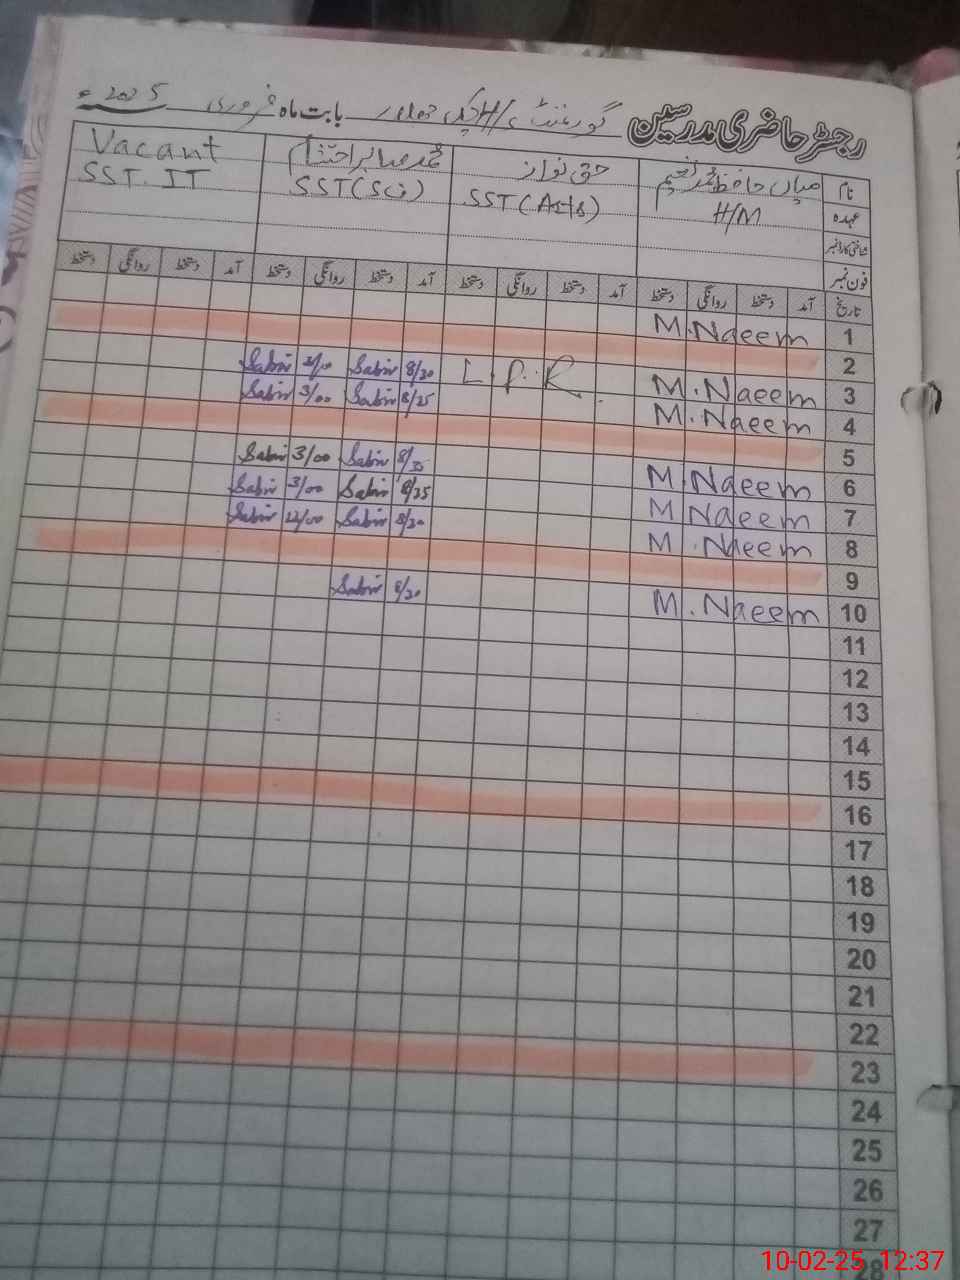 رجسٹر حاضری مدرسین گورنمنٹ H/S چک بابت ماہ فروری 2025ء
نام میاں حافظ محمد نعیم حق نواز محمد صابر احتشام Vacant
عہدہ H/M SST (Arts) SST (Sci) SST. IT
شناختی کارڈ نمبر
فون نمبر
تاریخ آمد دستخط روانگی دستخط آمد دستخط روانگی دستخط آمد دستخط روانگی دستخط آمد دستخط روانگی دستخط
1 M.Naeem
2
3 M.Naeem L.P.R. 8/30 Sabir Sabir
4 M.Naeem 8/25 Sabir 3/00 Sabir
5
6 M.Naeem Sabir 3/00 Sabir
7 M.Naeem 8/25 Sabir 3/00 Sabir
8 M.Naeem 8/30 Sabir 12/00 Sabir
9
10 M.Naeem 8/30 Sabir
11
12
13
14
15
16
17
18
19
20
21
22
23
24
25
26
27
28
10-02-25 12:37